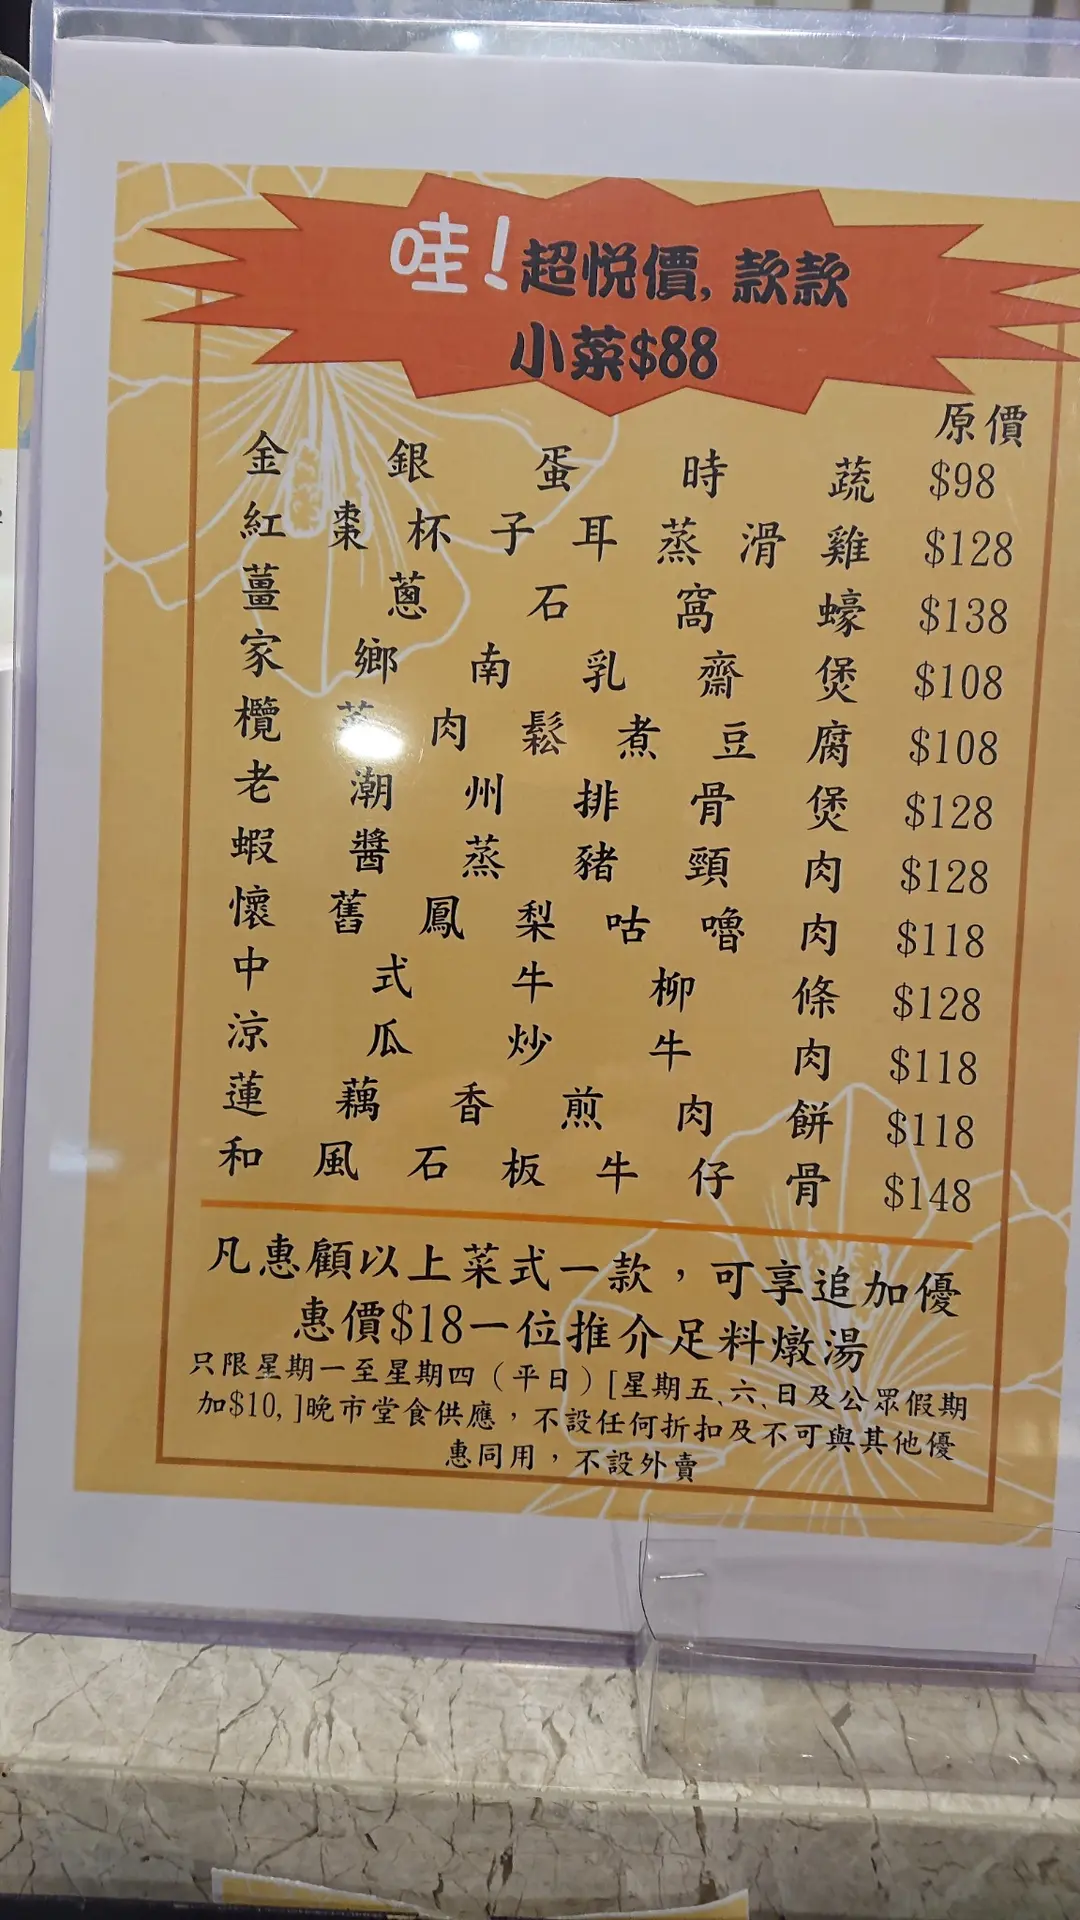 哇!超悅價,款款
小菜$88
原價
金銀蛋時蔬 $98
紅棗杯子耳蒸滑雞 $128
薑蔥石窩蠔 $138
家鄉南乳齋煲 $108
欖菜肉鬆煮豆腐 $108
老潮州排骨煲 $128
蝦醬蒸豬頸肉 $128
懷舊鳳梨咕嚕肉 $118
中式牛柳條 $128
涼瓜炒牛肉 $118
蓮藕香煎肉餅 $118
和風石板牛仔骨 $148
凡惠顧以上菜式一款,可享追加優
惠價$18一位推介足料燉湯
只限星期一至星期四(平日)[星期五、六、日及公眾假期
加$10,]晚市堂食供應,不設任何折扣及不可與其他優
惠同用,不設外賣